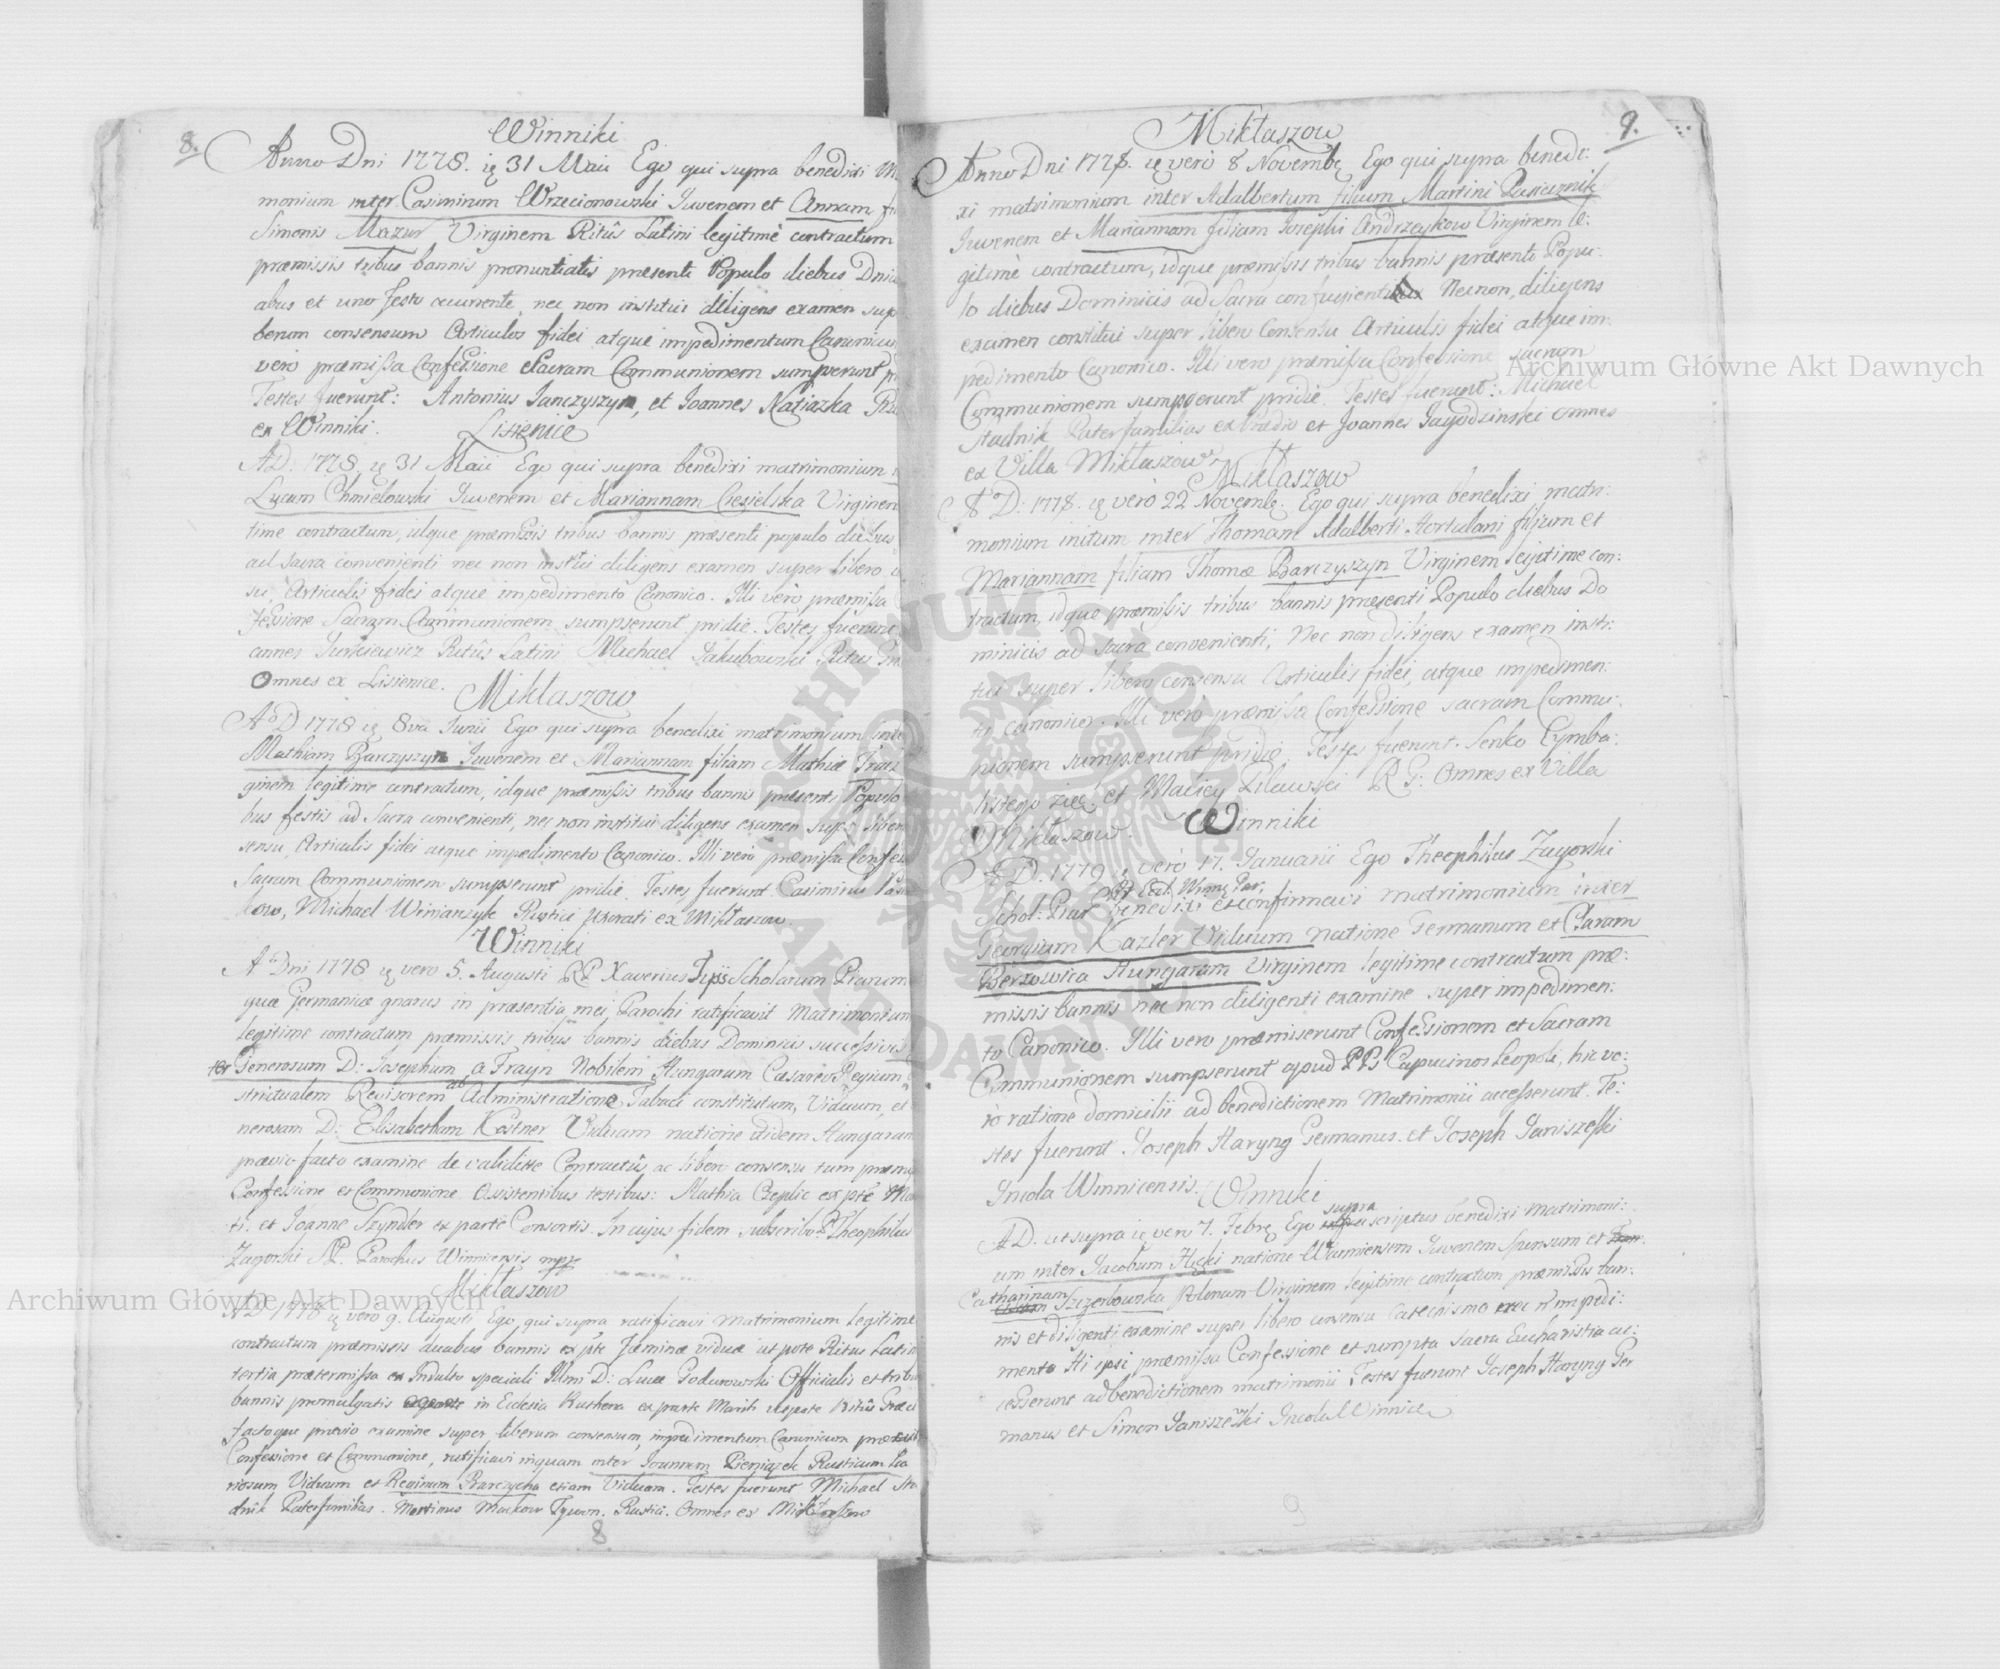 8.
Winniki
Anno Dni 1778. ię 31 Maii Ego qui supra benedixi M
monium inter Casimirum Wrzecionowski Iuvenem et Annam fi
Simonis Mazur Virginem Ritûs Latini legitimè contractum
præmissis tribus bannis pronuntiatis præsenti Populo diebus Dnic
abus et uno festo occurrente, nec non institui diligens examen sup
berum consensum Articulos fidei atque impedimentum Canonicu
verò præmissa Confessione Sacram Communionem sumpserunt p
Testes fuerunt: Antonius Janczyszyn, et Joannes Natiazka
ex Winniki.
Lisienice
A D: 1778 ię 31 Maii Ego qui supra benedixi matrimonium
Lucam Chmielowski Iuvenem et Mariannam Ciesielska Virginem
time contractum, idque præmissis tribus bannis præsenti populo diebus
ad sacra convenienti nec non institui diligens examen super libero
su, Articulis fidei atque impedimento Canonico. Illi verò præmissa
fessione Sacram Communionem sumpserunt pridie. Testes fuerunt
annes Jurkiewicz Ritûs Latini Michael Jakubowski Ritus
Omnes ex Lisienice.
Miktaszow
Ao D 1778 ię 8va Junii Ego qui supra benedixi matrimonium inte
Mathiam Barczyszyn Iuvenem et Mariannam filiam Mathiæ
ginem legitime contractum, idque præmissis tribus bannis præsenti Populo
bus festis ad Sacra convenienti, nec non institui diligens examen super liber
sensu, Articulis fidei atque impedimento Canonico. Illi vero præmissa Confes
Sacram Communionem sumpserunt pridie. Testes fuerunt Casimirus
kow, Michael Winianzyk Rustici Uxorati ex Miktaszow.
Winniki
A Dni 1778 ię vero 5. Augusti RP Xaverius Scholarum Piarum
quæ Germanicæ gnarus in præsentia mei Parochi ratificavit Matrimonium
legitime contractum præmissis tribus bannis diebus Dominicis successivis
ter Generosum D: Josephum a Frayn Nobilem Hungarum Cæsareo Regium
strictualem Revisorem ab Administratione Tabaci constitutum, Viduum, et
nerosam D: Elisabetham Kostner Viduam natione itidem Hungaram
prævio facto examine de validitte Contractûs ac libero consensu tum præmi
Confessione et Communione. Assistentibus testibus: Mathia Czeplic ex pte Ma
ti. et Joanne Szynder ex parte Consortis. In cujus fidem subscribo P Theophilus
Zagorski SP. Parochus Winnicensis mpp
Miktaszow
A D 1778 ię vero 9. Augusti Ego qui supra ratificavi Matrimonium legitime
contractum præmissis duabus bannis ex pte Fæminæ viduæ ut pote Ritus Latin
tertia prætermissa ex Indulto speciali Illmi D: Lucæ Godurowski Officialis et tribu
bannis promulgatis in Ecclesia Ruthena ex parte Mariti utpote Ritûs Græci
factoque prævio examine super liberum consensum, impedimentum Canonicum
Confessione et Communione, ratificavi inquam inter Joannem Pieniązek Rusticum La
riosum Viduum et Reginam Barczycha etiam Viduam. Testes fuerunt Michael Sta
dnik Paterfamilias. Martinus Mackow Tywon. Rustici. Omnes ex Miktaszow
8
9.
Miktaszow
Anno Dni 1778. ię verò 8 Novembę Ego qui supra benedi:
xi matrimonium inter Adalbertum filium Martini Pasiecznik
Iuvenem et Mariannam filiam Josephi Andrzeykow Virginem le:
gitimè contractum, idque præmissis tribus bannis præsenti Popu:
lo diebus Dominicis ad Sacra Necnon, diligens
examen constitui super libero Consensu Articulis fidei atque im:
pedimento Canonico. Illi vero præmissa Confessione sacram
Communionem sumpserunt pridie. Testes fuerunt: Michael
Stadnik Paterfamilias ex Gradio et Joannes Jagodzinski omnes
ex Villa Miktaszow.
Miktaszow
A D: 1778. ię verò 22 Novembę. Ego qui supra benedixi matri:
monium initum inter Thomam Adalberti Hortulani filium et
Mariannam filiam Thomæ Barczyszyn Virginem legitime con:
tractum, idque præmissis tribus bannis præsenti Populo diebus Do
minicis ad Sacra convenienti, Nec non diligens examen insti:
tui super libero consensu Articulis fidei, atque impedimen:
to canonico. Illi vero præmissa Confessione sacram Commu:
nionem sumpserunt pridie. Testes fuerunt. Senko Cymba:
listego zięć, et Maciey Pilawski R G: Omnes ex Villa
Miktaszow.
Winniki
A D. 1779, verò 17. Januarii Ego Theophilus Zagorski
Schol: Piar benedixi et confirmavi matrimonium inter
Georgium Kazler Viduum natione Germanum et Claram
Berzowica Hungaram Virginem legitime contractum præ:
missis bannis nec non diligenti examine super impedimen:
to Canonico. Illi vero præmiserunt Confessionem et Sacram
Communionem sumpserunt apud PP Capucinos Leopoli, hic ve:
rò ratione domicilii ad benedictionem Matrimonii accesserunt. Te:
stes fuerunt Joseph Haryng Germanus. et Joseph Janiszeski
Incola Winnicensis.
Winniki
A D. ut supra ię vero 7. Febrę Ego supra scriptus benedixi matrimoni:
um inter Jacobum Hicki natione Warmiensem Iuvenem Sponsum et
Catharinam Szczerbowska Polonam Virginem legitime contractum præmissis ban:
nis et diligenti examine super libero consensu Catechismo nec n impedi:
mento Hi ipsi præmissa Confessione et sumpta Sacra Eucharistia ac:
cesserunt ad benedictionem matrimonii. Testes fuerunt Joseph Haryng Ger
manus et Simon Janiszeski Incola Winnice
9
Archiwum Główne Akt Dawnych
Archiwum Główne Akt Dawnych
ARCHIWUM GŁÓWNE AKT DAWNYCH